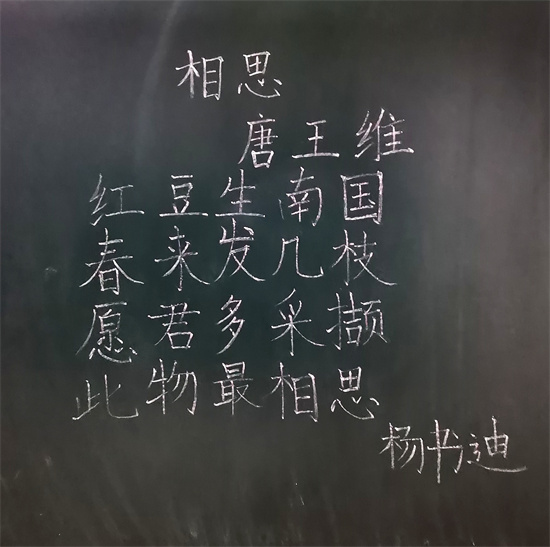 相思
唐王维
红豆生南国
春来发几枝
愿君多采撷
此物最相思
杨书迪